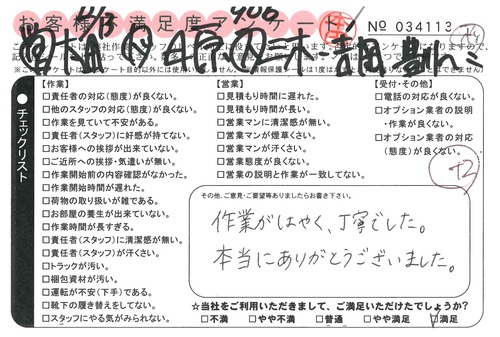 お客様満足度アンケート
No 034113
チェックリスト
【作業】
□責任者の対応(態度)が良くない。
□他のスタッフの対応(態度)が良くない。
□作業を見ていて不安がある。
□責任者(スタッフ)に好感が持てない。
□お客様への挨拶が出来ていない。
□ご近所への挨拶・気遣いが無い。
□作業開始前の内容確認がなかった。
□作業開始時間が遅れた。
□荷物の取り扱いが雑である。
□お部屋の養生が出来ていない。
□作業時間が長すぎる。
□責任者(スタッフ)に清潔感が無い。
□責任者(スタッフ)が汗くさい。
□トラックが汚い。
□梱包資材が汚い。
□運転が不安(下手)である。
□靴下の履き替えをしてない。
□スタッフにやる気がみられない。
【営業】
□見積もり時間に遅れた。
□見積もり時間が長い。
□営業マンに清潔感が無い。
□営業マンが煙草くさい。
□営業マンが汗くさい。
□営業態度が良くない。
□営業の説明と作業が一致してない。
【受付・その他】
□電話の対応が良くない。
□オプション業者の説明
・作業が良くない。
□オプション業者の対応
(態度)が良くない。
+2
その他、ご意見・ご要望等ありましたらお書き下さい。
作業がはやく、丁寧でした。
本当にありがとうございました。
☆当社をご利用いただきまして、ご満足いただけたでしょうか?
□不満 □やや不満 □普通 □やや満足 ☑満足